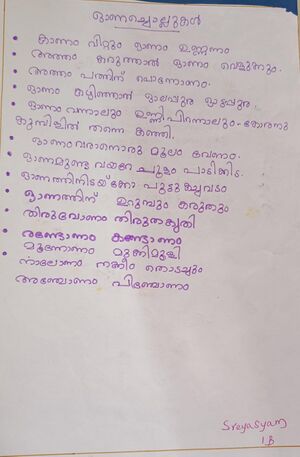 ഓണച്ചൊല്ലുകൾ
കാണം വിറ്റും ഓണം ഉണ്ണണം
അത്തം കറുത്താൽ ഓണം വെളുക്കും.
അത്തം പത്തിന് പൊന്നോണം.
ഓണം കഴിഞ്ഞാൽ ഓലപ്പുര ഓട്ടപ്പുര.
ഓണം വന്നാലും ഉണ്ണി പിറന്നാലും. കോരനു
കുമ്പിളിൽ തന്നെ കഞ്ഞി.
ഓണം വരാനൊരു മൂലം വേണം.
ഓണമുണ്ട വയറേ ചൂളം പാടികിട
ഓണത്തിനിടയ്ക്കോ പുട്ടുകച്ചവടം
ഓണത്തിന് ഉറുമ്പും കരുതും
തിരുവോണം തിരുതകൃതി
രണ്ടോണം കണ്ടോണം
മൂന്നോണം മുക്കിമുക്കി
നാലോണം നക്കീം തൊടച്ചും
അഞ്ചോണം പിഞ്ചോണം
Sreyasyam
1 B